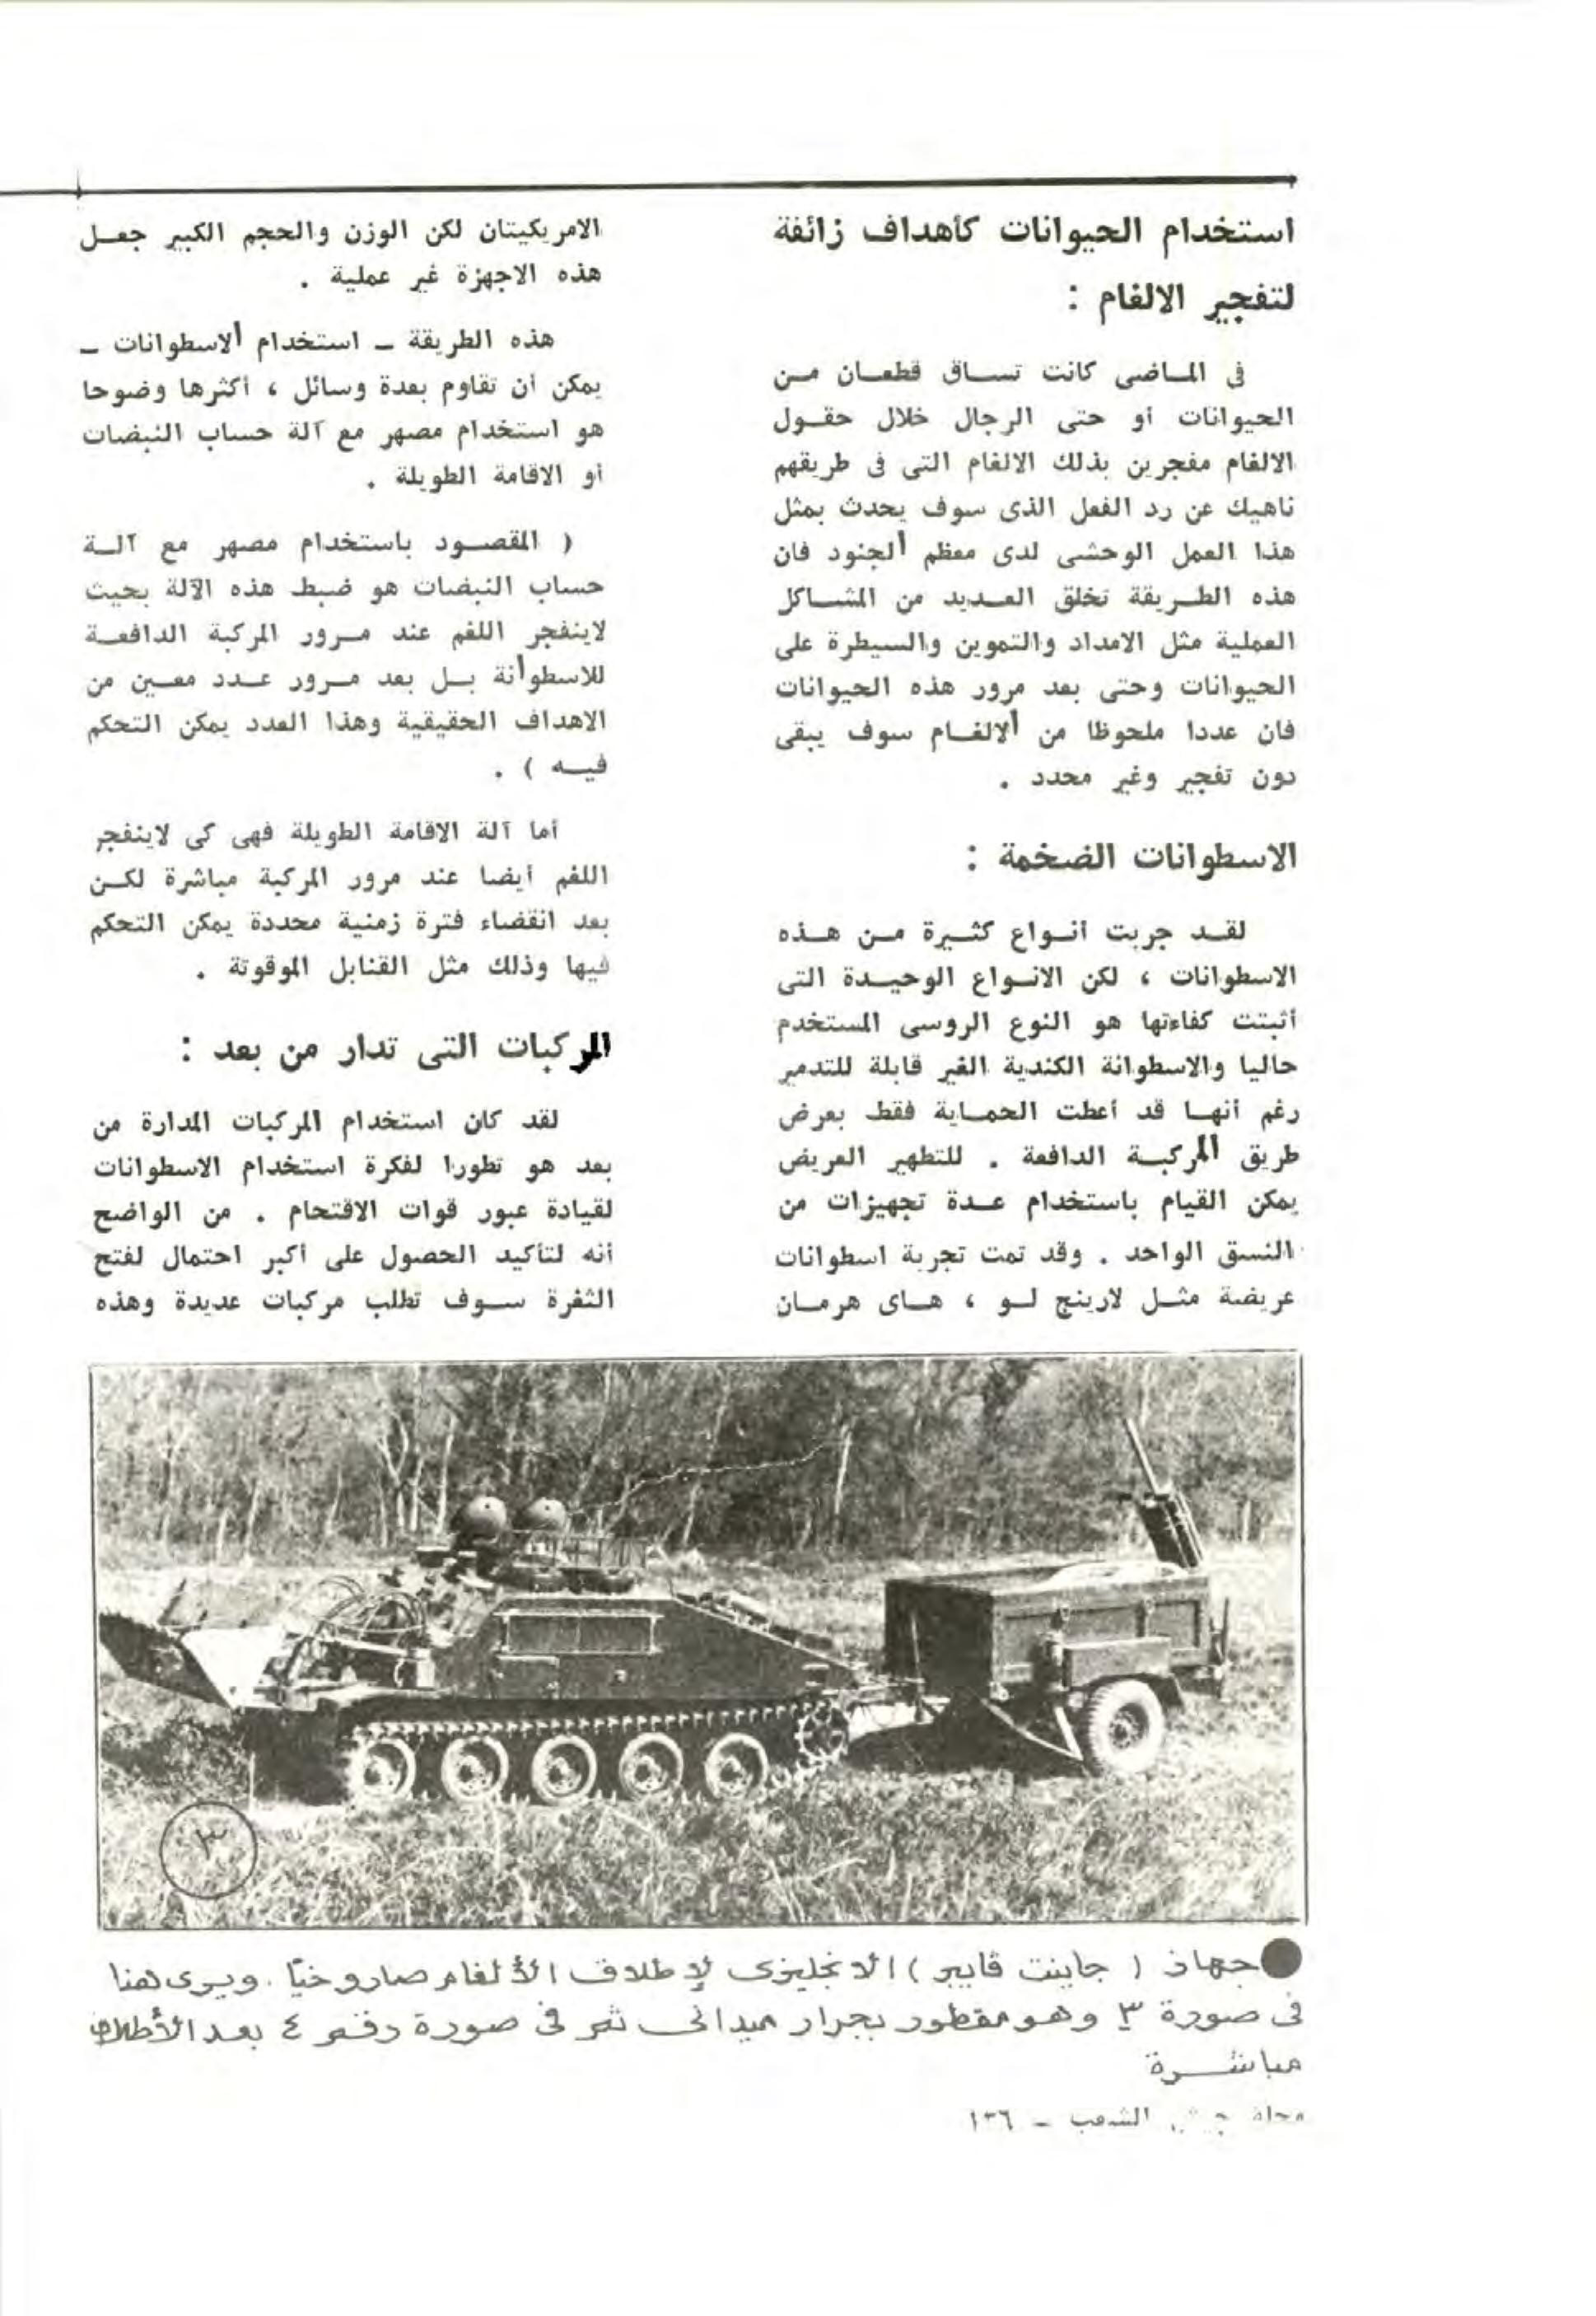 استخدام الحيوانات كأهداف زائفة
لتفجير الالغام :
فى المـاضى كانت تسـاق قطعـان مـن
الحيوانات أو حتى الرجال خلال حقـول
الالغام مفجرين بذلك الالغام التى فى طريقهم
ناهيك عن رد الفعل الذى سوف يحدث بمثل
هذا العمل الوحشى لدى معظم ألجنود فان
هذه الطـريقة تخلق العـديد من المشـاكل
العملية مثل الامداد والتموين والسيطرة على
الحيوانات وحتى بعد مرور هذه الحيوانات
فان عددا ملحوظا من ألالغـام سوف يبقى
دون تفجير وغير محدد .
الاسطوانات الضخمة :
لقـد جربت أنـواع كثـيرة مـن هـذه
الاسطوانات ، لكن الانـواع الوحيـدة التى
أثبتت كفاءتها هو النوع الروسى المستخدم
حاليا والاسطوانة الكندية الغير قابلة للتدمير
رغم أنهـا قد أعطت الحمـاية فقط بعرض
طريق المركبـة الدافعة . للتطهير العريض
يمكن القيام باستخدام عـدة تجهيزات من
النسق الواحد . وقد تمت تجربة اسطوانات
عريضة مثـل لارينج لـو ، هـاى هرمـان
الامريكيتان لكن الوزن والحجم الكبير جعـل
هذه الاجهزة غير عملية .
هذه الطريقة ـ استخدام ألاسطوانات ـ
يمكن أن تقاوم بعدة وسائل ، أكثرها وضوحا
هو استخدام مصهر مع آلة حساب النبضات
أو الاقامة الطويلة .
( المقصـود باستخدام مصهر مع آلـة
حساب النبضات هو ضبط هذه الآلة بحيث
لاينفجر اللغم عند مـرور المركبة الدافعـة
للاسطوأنة بـل بعد مـرور عـدد معـين من
الاهداف الحقيقية وهذا العدد يمكن التحكم
فيـه ) .
أما آلة الاقامة الطويلة فهى كى لاينفجر
اللغم أيضا عند مرور المركبة مباشرة لكـن
بعد انقضاء فترة زمنية محددة يمكن التحكم
فيها وذلك مثل القنابل الموقوتة .
المركبات التى تدار من بعد :
لقد كان استخدام المركبات المدارة من
بعد هو تطورا لفكرة استخدام الاسطوانات
لقيادة عبور قوات الاقتحام . من الواضح
أنه لتأكيد الحصول على أكبر احتمال لفتح
الثغرة سـوف تطلب مركبات عديدة وهذه
٣
جهاز ( جاينت ڤايبر ) الانجليزى لإطلاق الألغام صاروخيًا . ويرى هنا
فى صورة ٣ وهو مقطور بجرار ميدانى ثم فى صورة رقم ٤ بعد الأطلاق
مباشـرة
مجلة جيش الشعب ـ ١٣٦